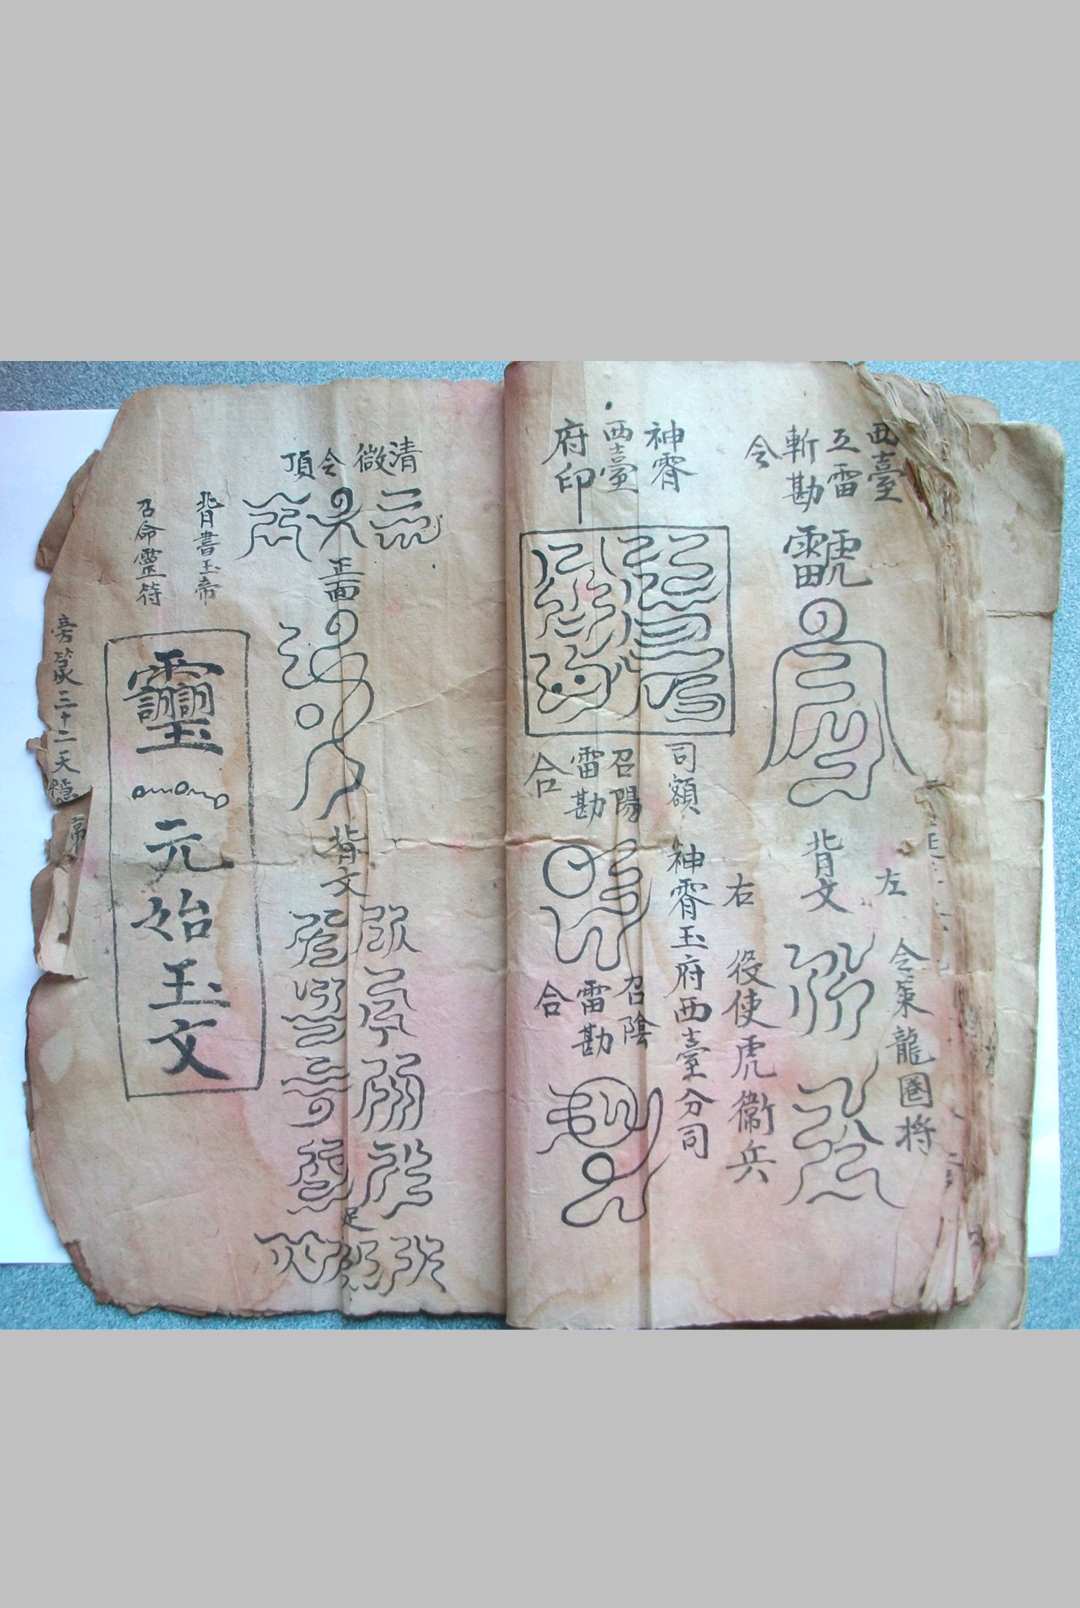 西臺
五雷
斬勘
令
背文
左
令策龍圈将
右
役使虎衞兵
神霄
西臺
府印
司額
神霄玉府西臺分司
召陽
雷勘
合
召陰
雷勘
合
清
微
令
頂
正面
背文
足
背書玉帝
召命靈符
元始玉文
旁篆三十二天隱